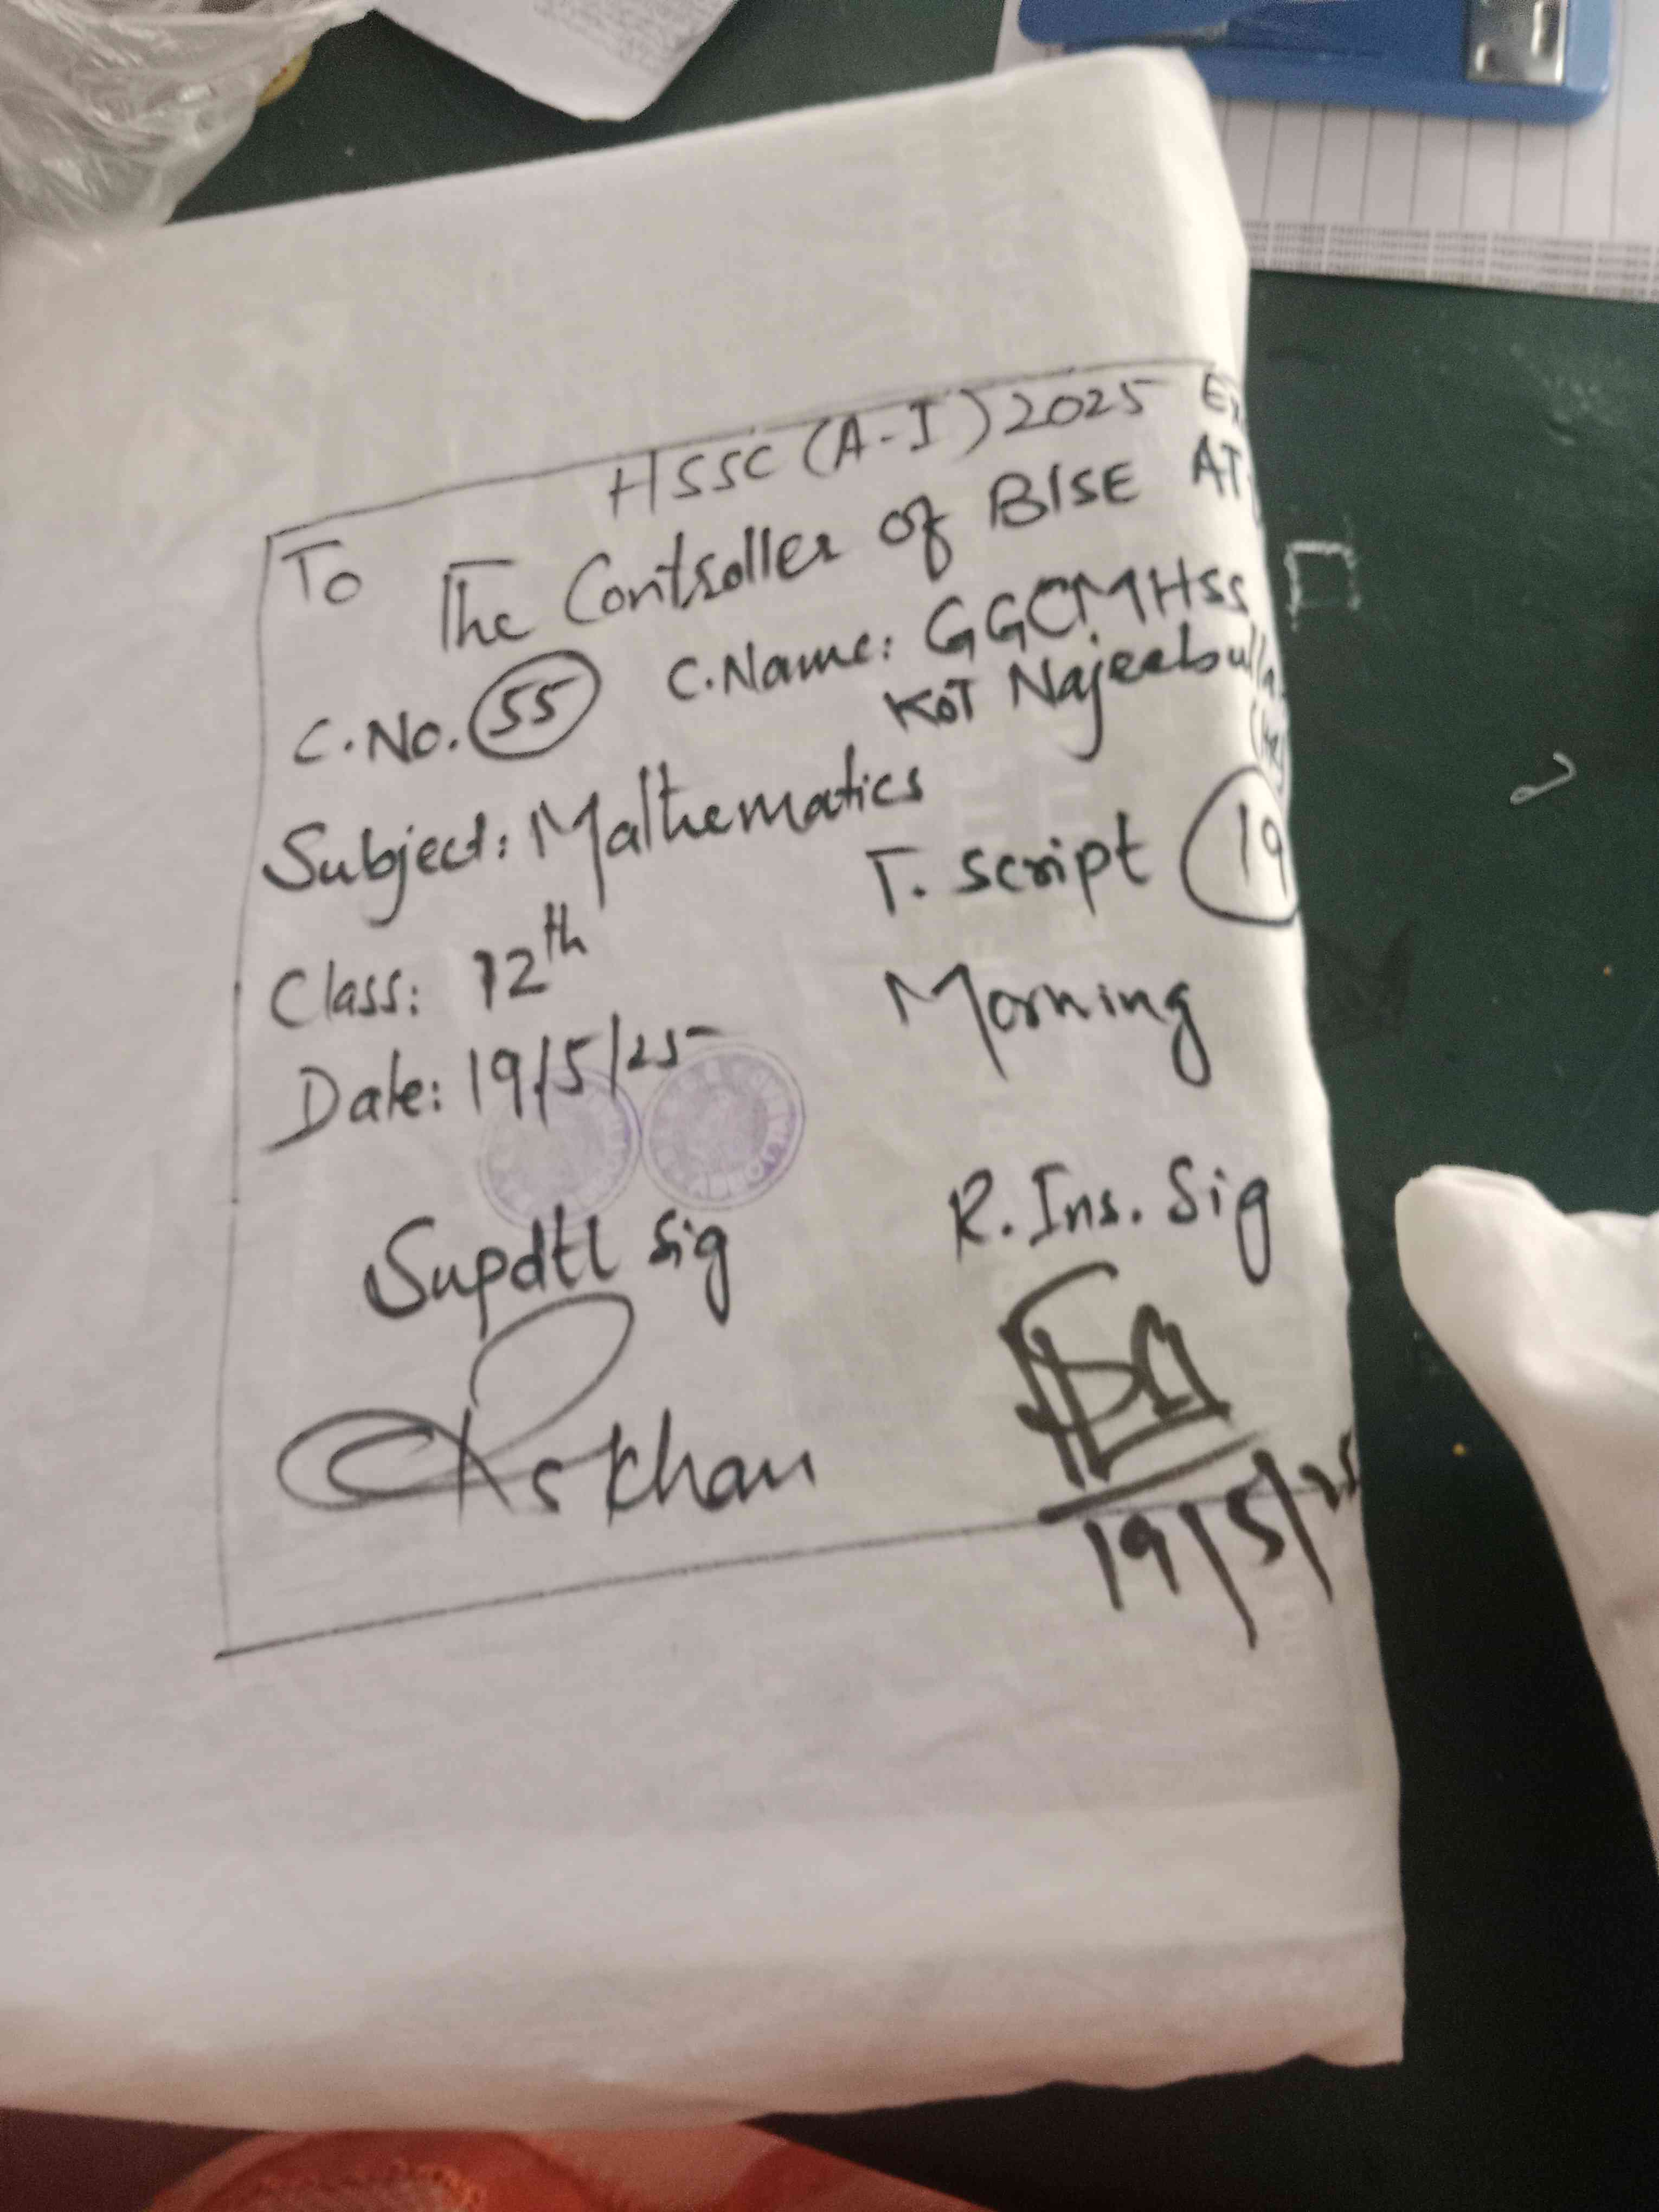 HSSC (A-I) 2025 Ex
To
The Controller of BISE AT
C.No. 55 C.Name: GGCMHSS
KOT Najeebulla
Subject: Mathematics
T. Script 19
Class: 12th
Morning
Date: 19/5/25
Supdtt Sig
R. Ins. Sig
Khan
19/5/25